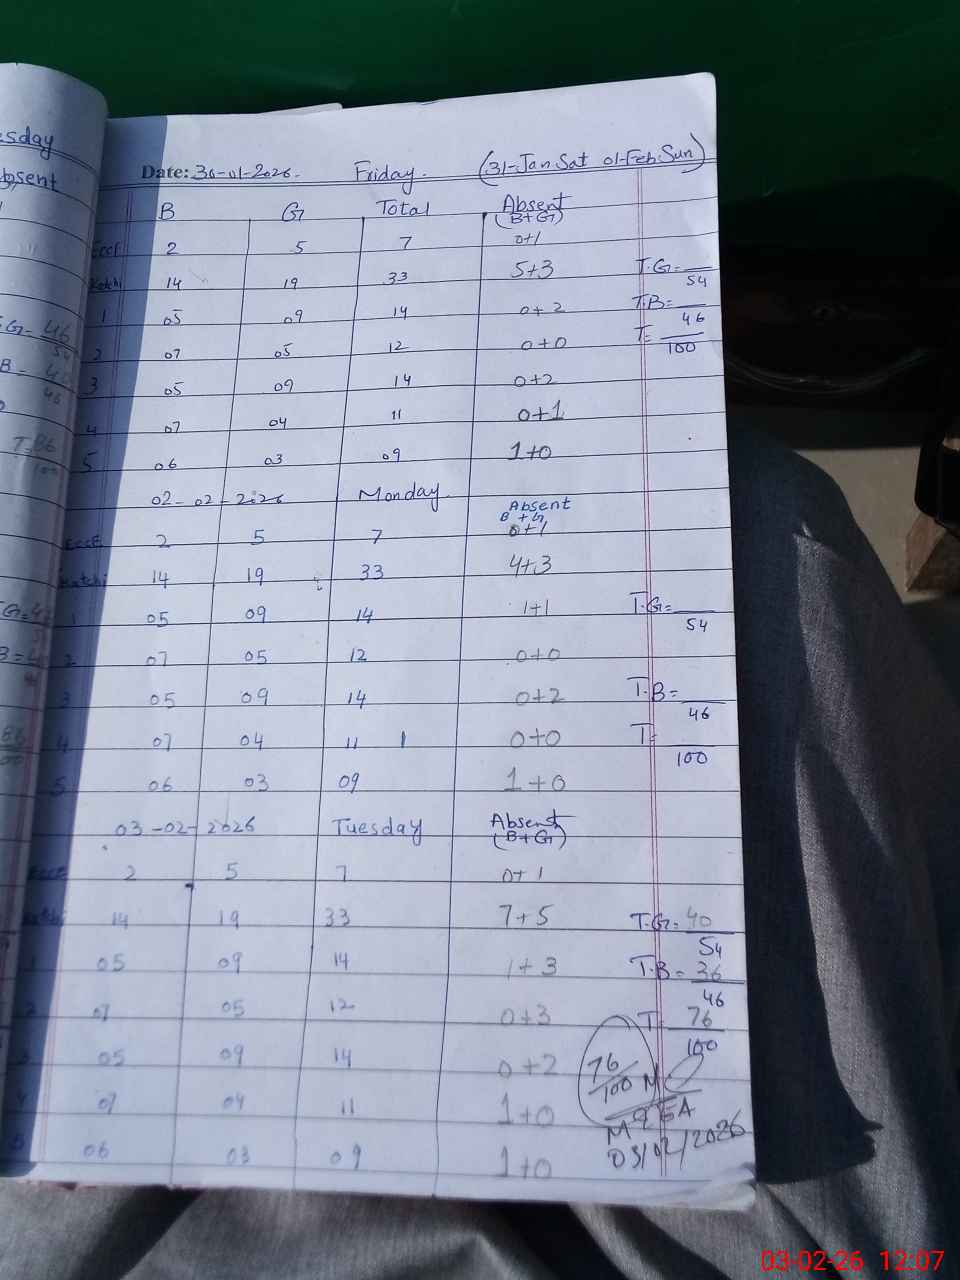 esday
bsent
G- 46
54
B-
46
T=86
100
Date: 30-01-2026. Friday. (31-Jan Sat 01-Feb Sun)
B G Total Absent
(B+G)
ECCE 2 5 7 0+1
Katchi 14 19 33 5+3 T.G=
54
1 05 09 14 0+2 T.B=
46
2 07 05 12 0+0 T=
100
3 05 09 14 0+2
4 07 04 11 0+1
5 06 03 09 1+0
02-02-2026 Monday. Absent
B+G
ECCE 2 5 7 0+1
Katchi 14 19 33 4+3
1 05 09 14 1+1 T.G=
54
2 07 05 12 0+0
3 05 09 14 0+2 T.B=
46
4 07 04 11 0+0 T=
100
5 06 03 09 1+0
03-02-2026 Tuesday Absent
(B+G)
ECCE 2 5 7 0+1
Katchi 14 19 33 7+5 T.G=40
54
1 05 09 14 1+3 T.B=36
46
2 07 05 12 0+3 T=76
100
3 05 09 14 0+2 76
100
4 07 04 11 1+0 MQEA
03/02/2026
5 06 03 09 1+0
03-02-26 12:07